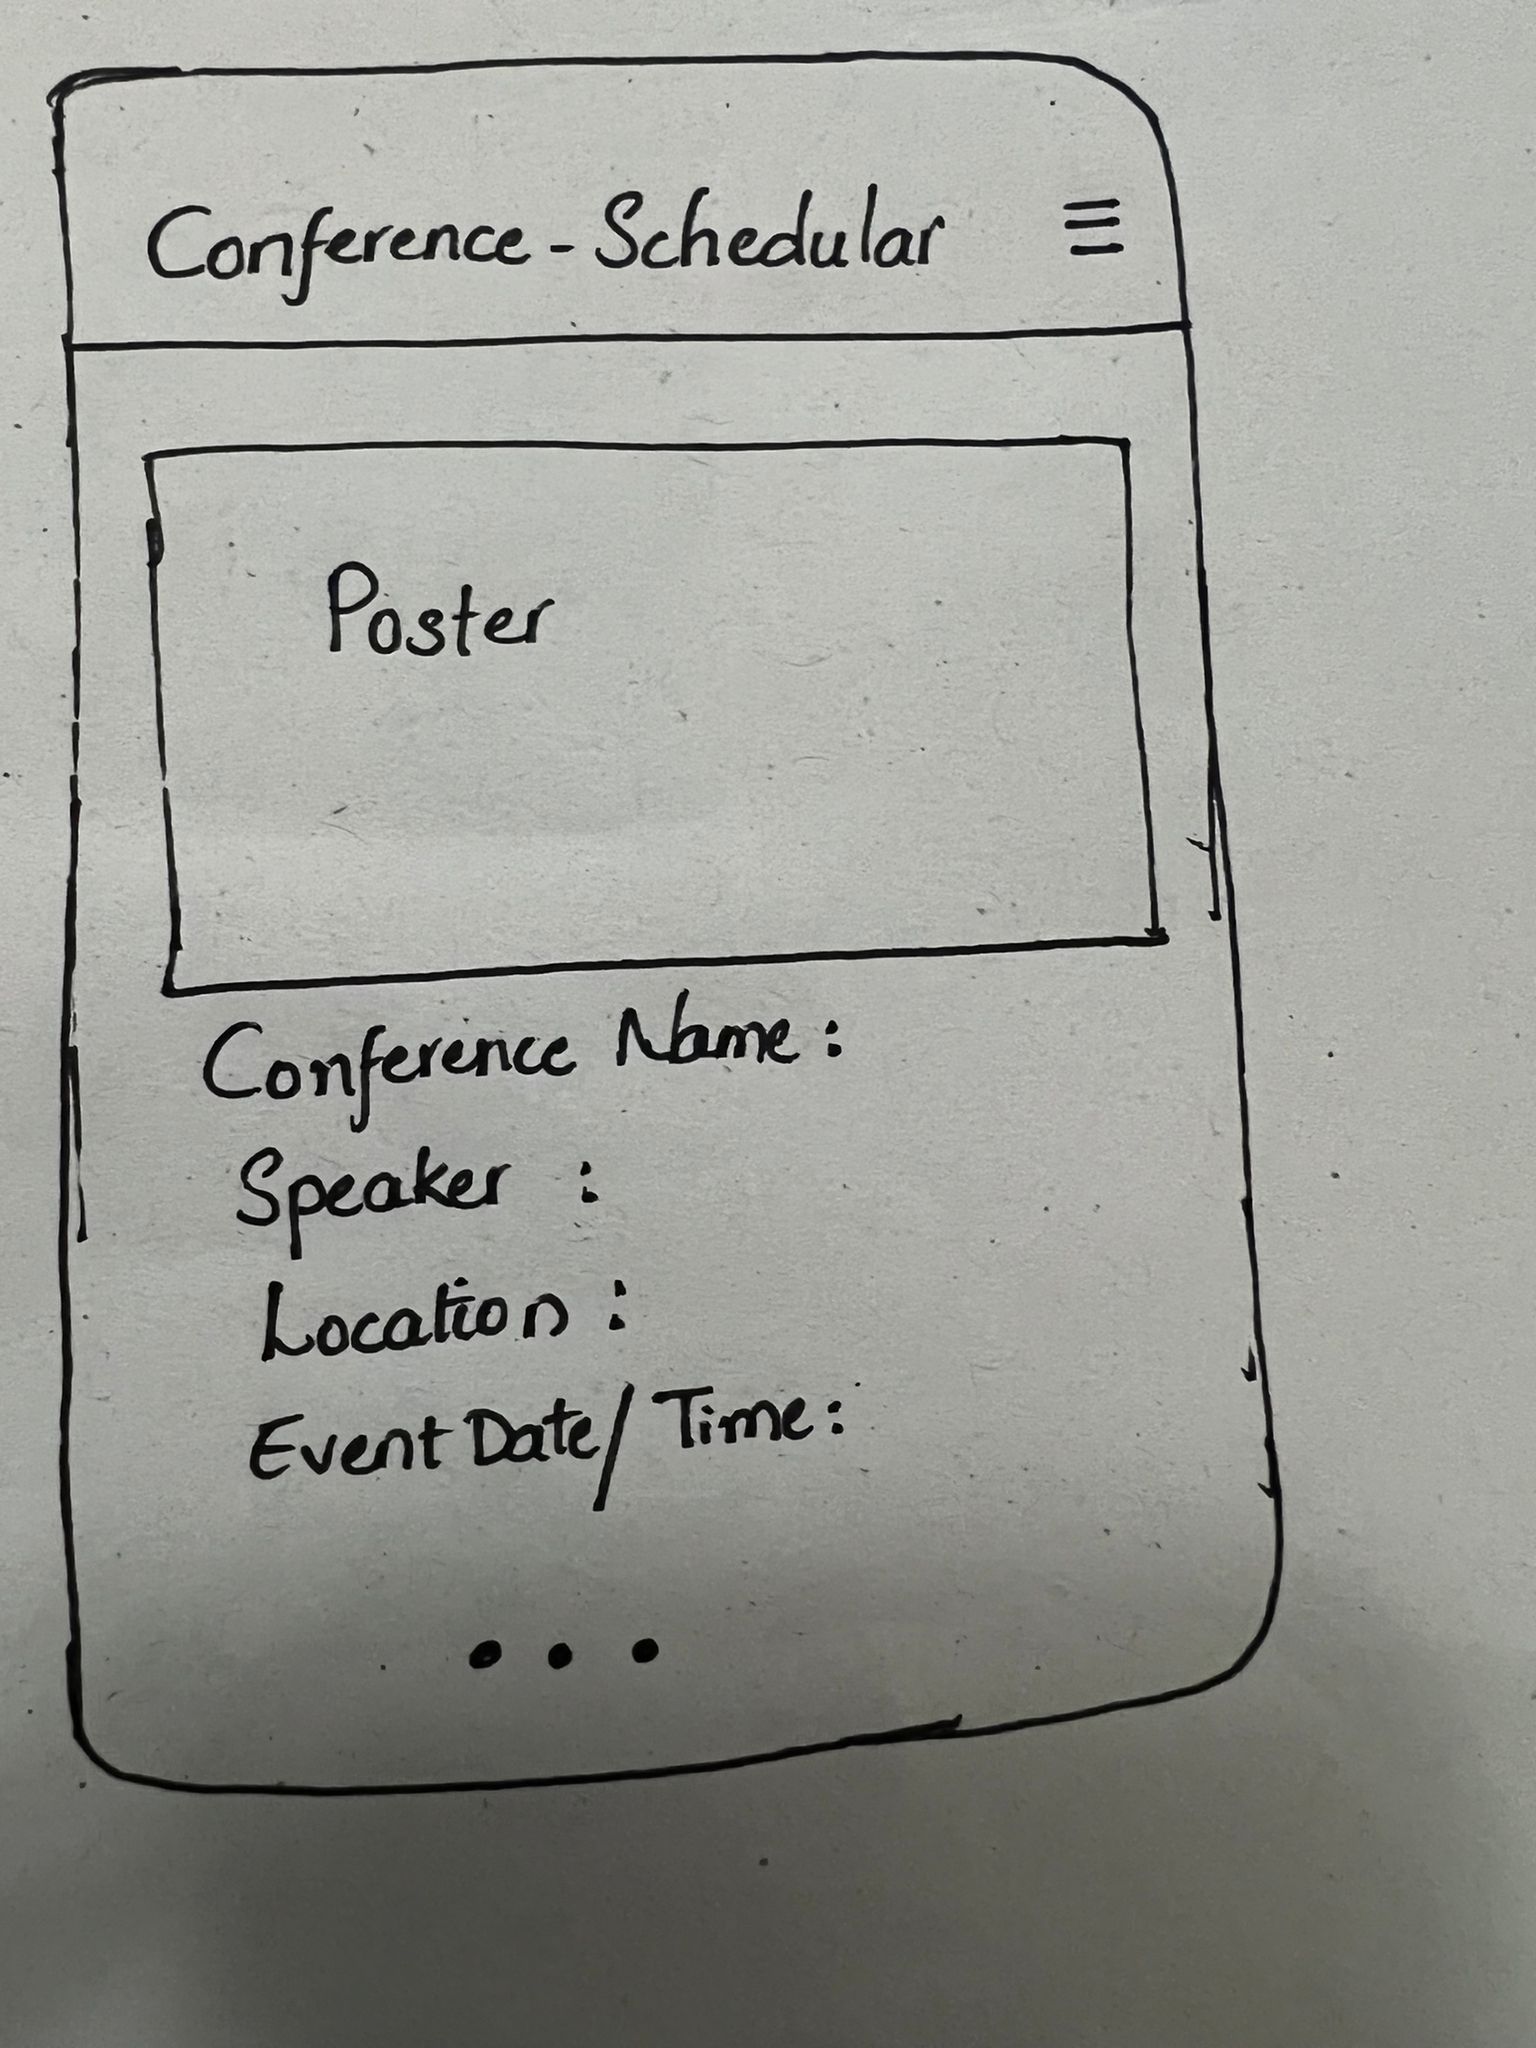 Conference - Schedular
Poster
Conference Name :
Speaker :
Location :
Event Date / Time :